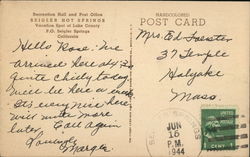 Recreation Hall and Post Office
SEIGLER HOT SPRINGS
Vacation Spot of Lake County
P.O. Seigler Springs
California
HANDCOLORED
POST CARD
Hello Rose: We
arrived here
Quite Chilly today.
here a week
It's very nice here,
will write more
later, Call Again
Marge
Mrs. Ed Foester
37 Temple
Holyoke
Mass.
JUN
16
P.M.
1944